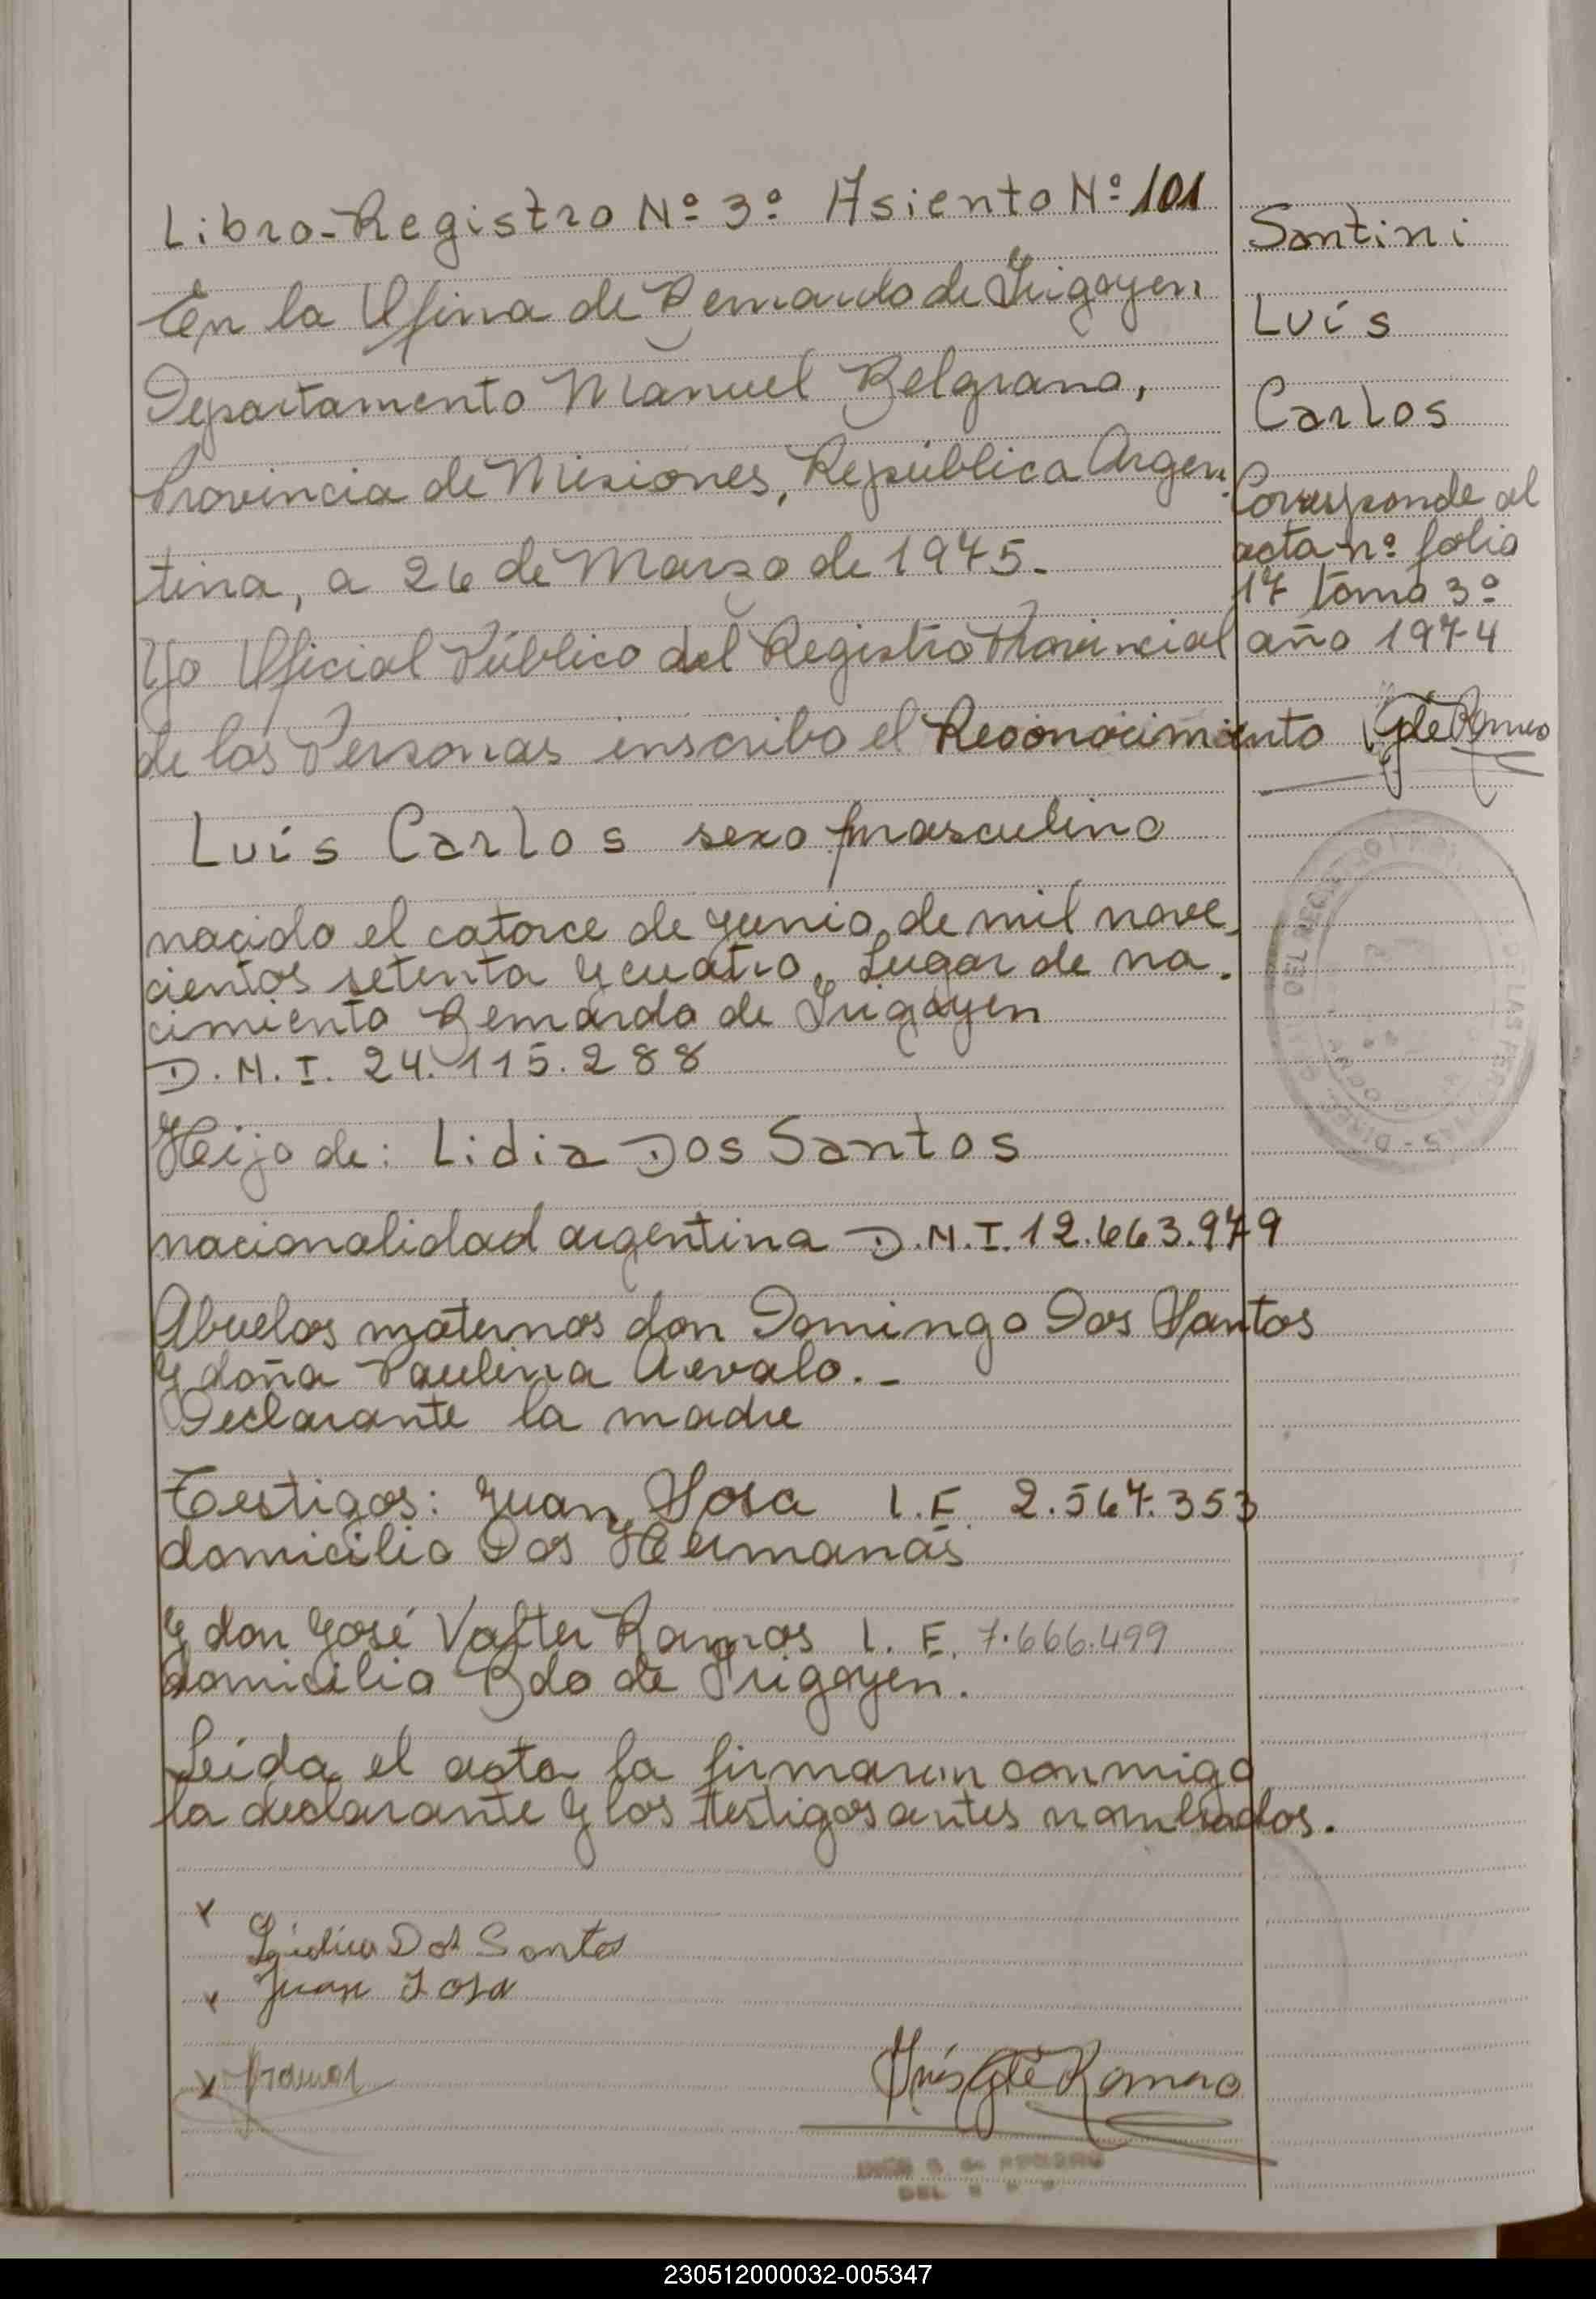 Libro-Registro Nº 3º Asiento Nº 101
En la Ofina de Bernardo de Irigoyen
Departamento Manuel Belgrano,
Provincia de Misiones, República Argen
tina, a 26 de Marzo de 1975.
Yo Oficial Público del Registro Provincial
de las Personas inscribo el Reconocimiento
Luis Carlos sexo masculino
nacido el catorce de junio de mil nove
cientos setenta y cuatro. Lugar de na.
cimiento Bernardo de Irigoyen
D.N.I. 24.115.288
Hijo de: Lidia Dos Santos
nacionalidad argentina D.N.I. 12.663.979
Abuelos maternos don Domingo Dos Santos
y doña Paulina Arevalo.-
Declarante la madre
Testigos: Juan Sosa L.E. 2.567.353
domicilio Dos Hermanas
y don José Valter Ramos L.E. 7.666.499
domicilio Bdo de Irigoyen.
Leída el acta la firmaron conmigo
la declarante y los testigos antes nombrados.
Lidia Dos Santos
Juan Sosa
Ramos
Inés G. de Romero
Santini
Luis
Carlos
Corresponde al
acta nº folio
17 tomo 3º
año 1974
G. de Romero
DEL REGISTRO
DE LAS PERSONAS
230512000032-005347